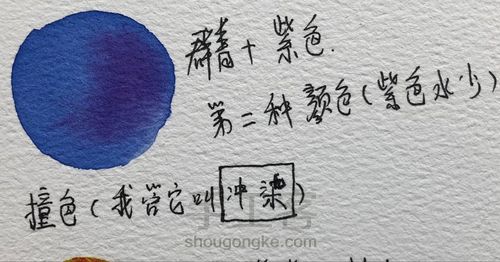 群青+紫色.
第二种颜色(紫色水少)
撞色(我管它叫冲染)
shougongke.com